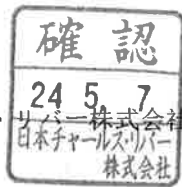 確認
24 5. 7
・リバー株式会社
日本チャールズ・リバー
株式会社